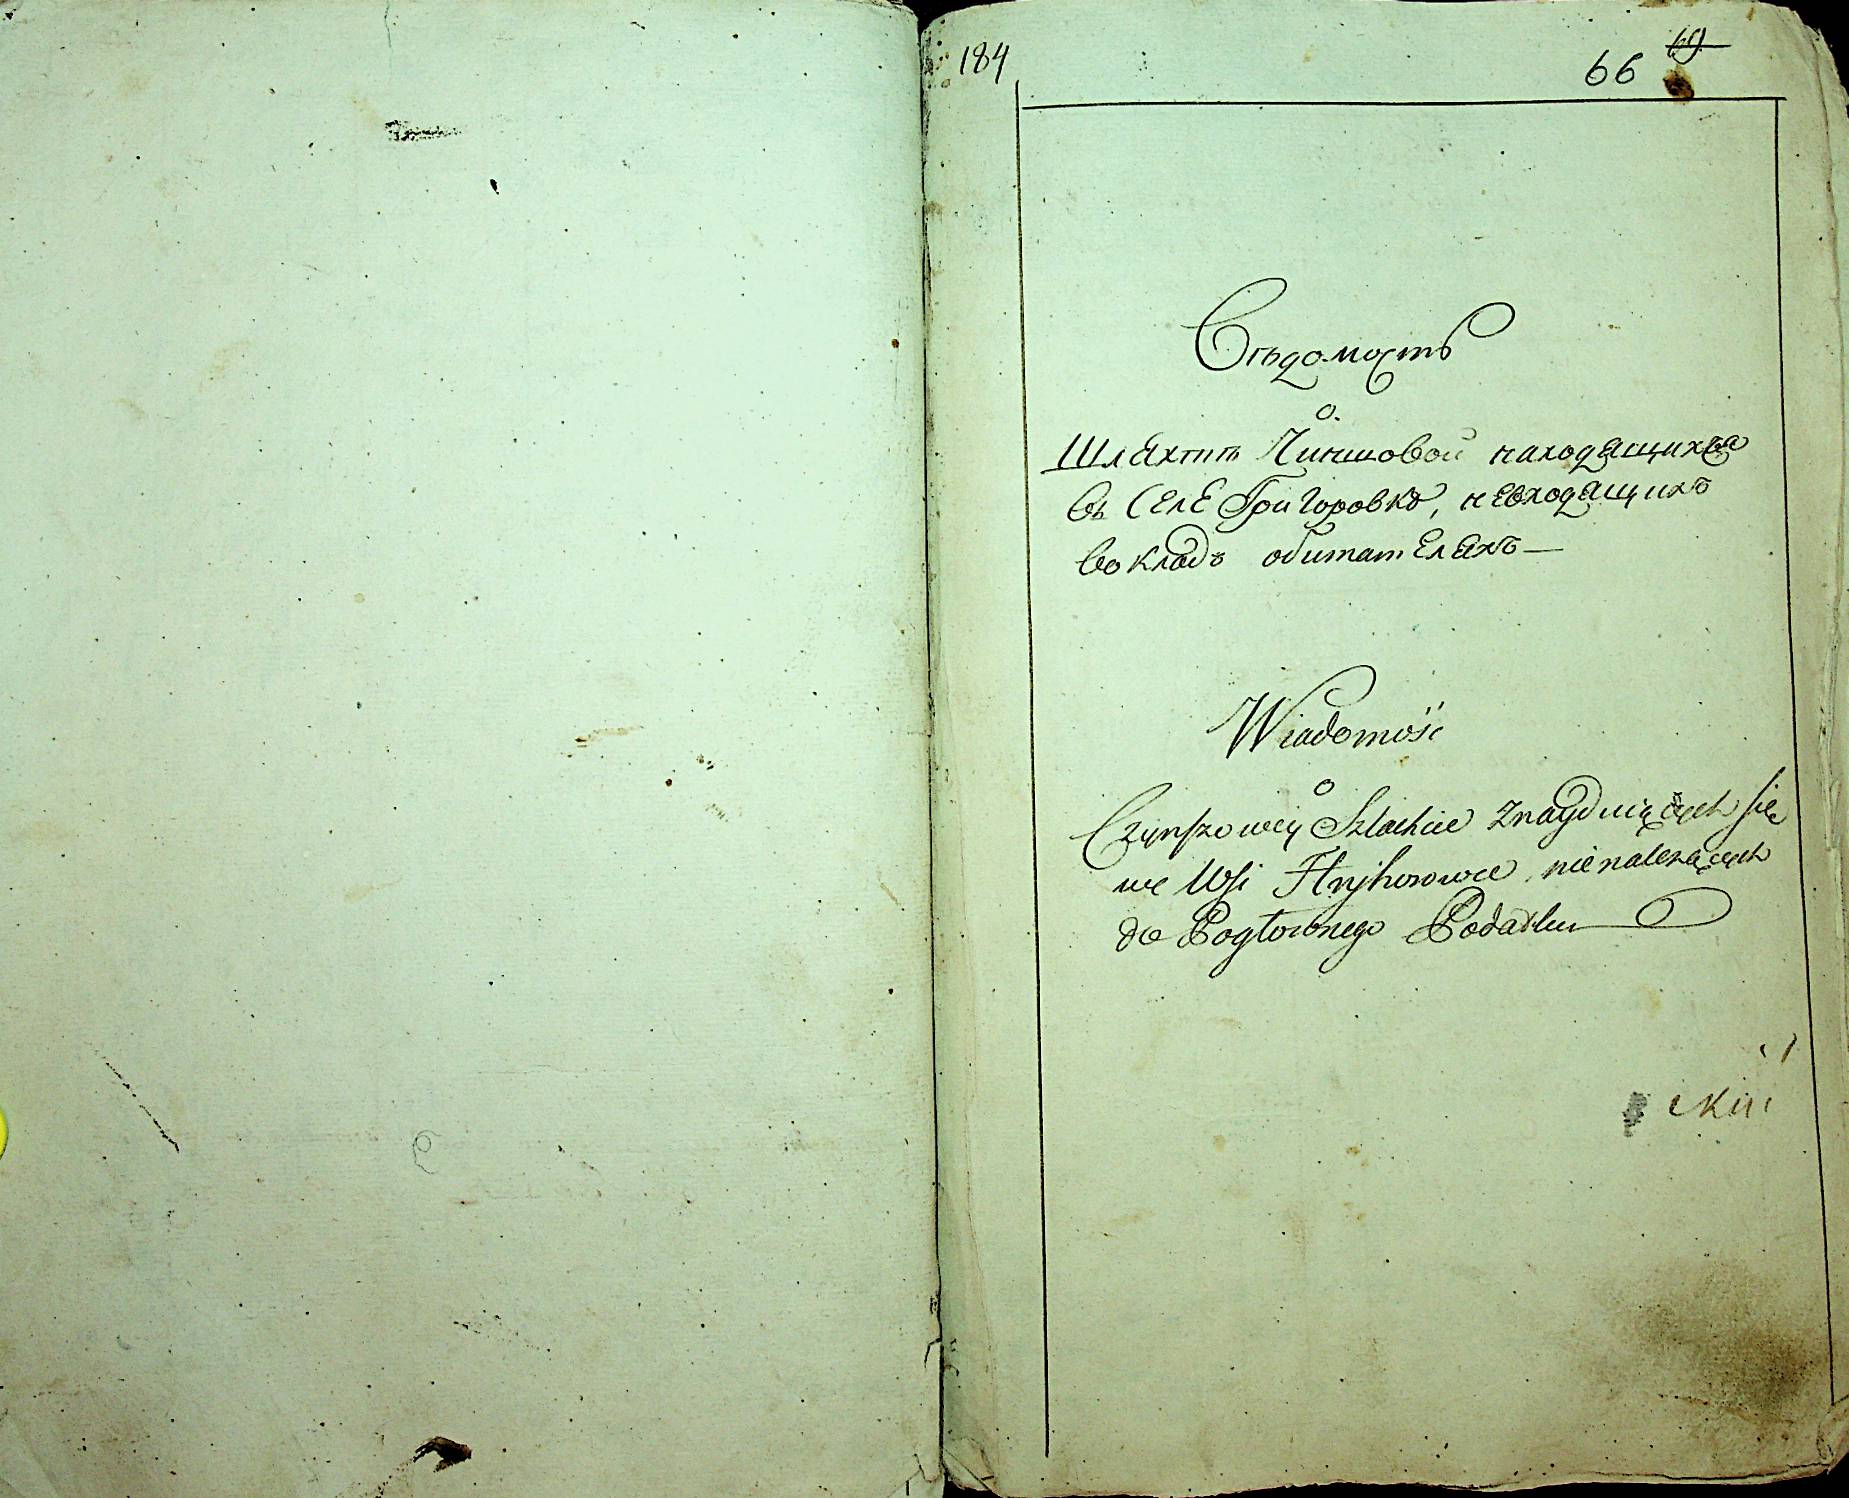 184
66 69
Вѣдомость
о.
Шляхтѣ Чиншовой находящихся
въ Селе Григоровкѣ, невходящихъ
вокладъ обитателяхъ —
Wiadomość
o
Czynszowey Szlachcie znayduiących się
we Wsi Hryhorowce, nienależących
do Pogłownego Podatku
ский